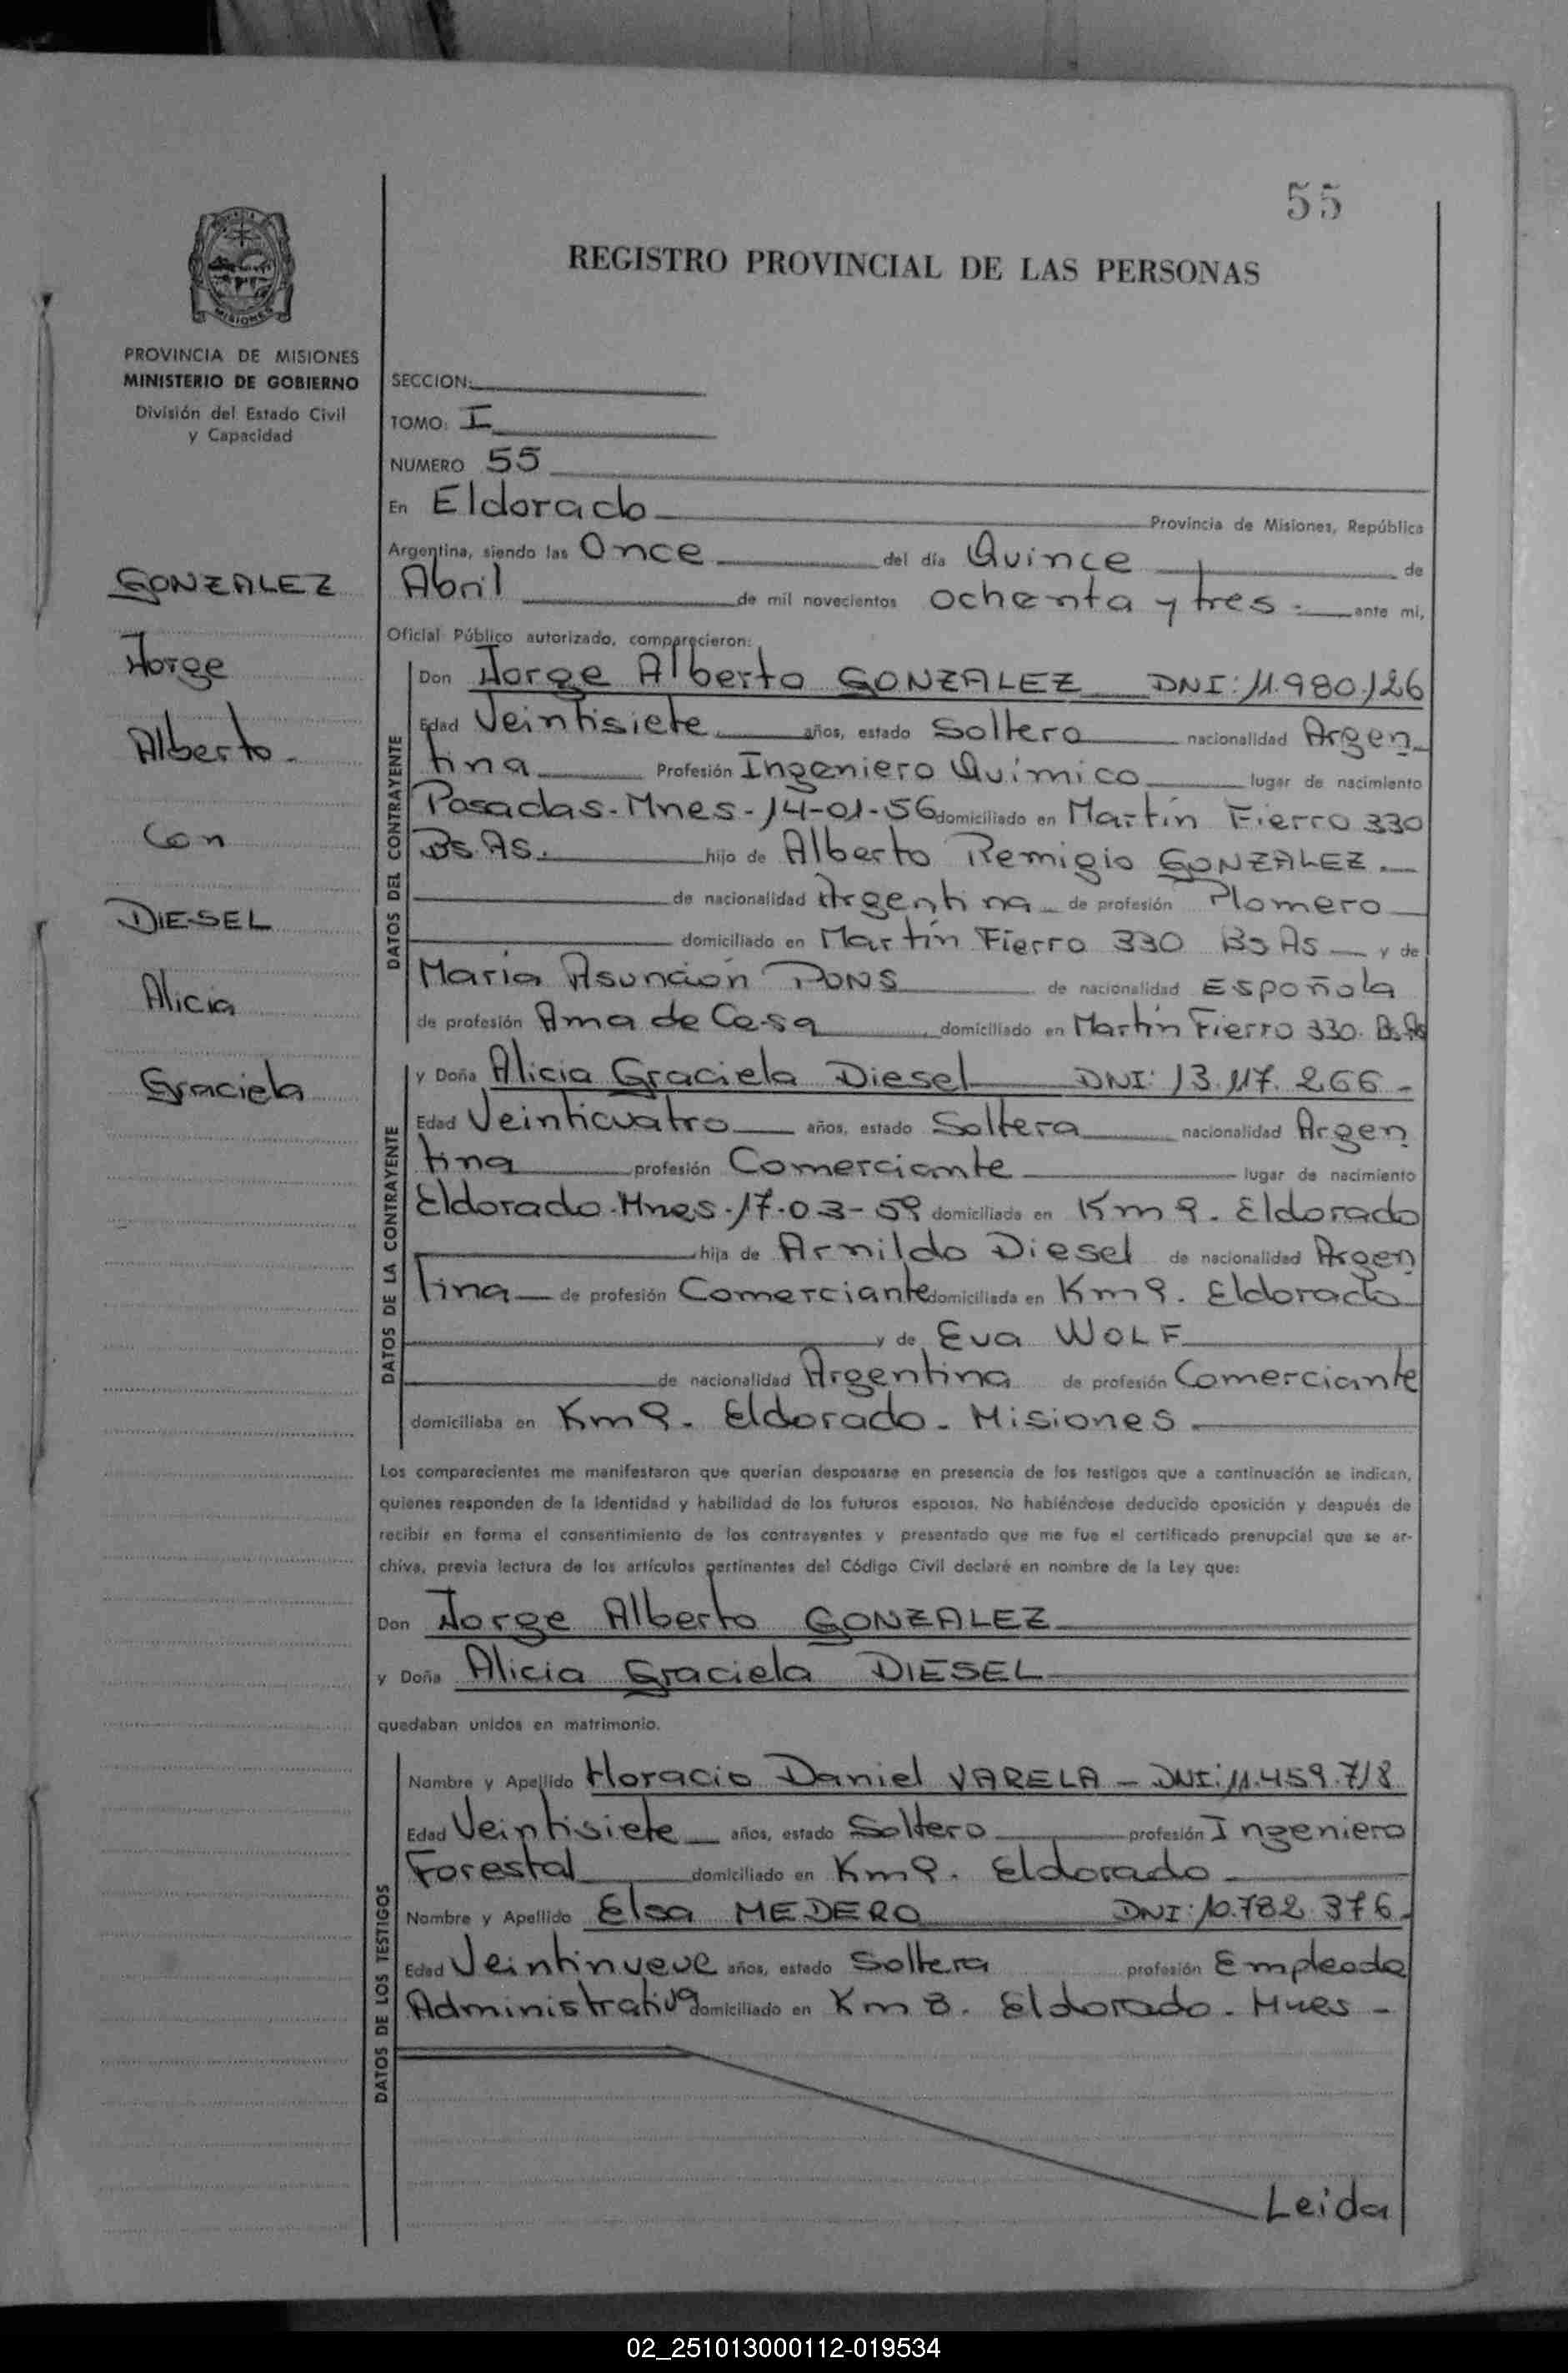 55
REGISTRO PROVINCIAL DE LAS PERSONAS
MISIONES
PROVINCIA DE MISIONES
MINISTERIO DE GOBIERNO
División del Estado Civil
y Capacidad
GONZALEZ
Jorge
Alberto -
Con
DIESEL
Alicia
Graciela
SECCION:
TOMO: I
NUMERO 55
En Eldorado Provincia de Misiones, República
Argentina, siendo las Once del día Quince de
Abril de mil novecientos ochenta y tres - ante mi,
Oficial Público autorizado, comparecieron:
DATOS DEL CONTRAYENTE
Don Jorge Alberto GONZALEZ DNI: 11.980.126
Edad Veintisiete años, estado Soltero nacionalidad Argen
tina Profesión Ingeniero Químico lugar de nacimiento
Posadas-Mnes-14-01-56 domiciliado en Martín Fierro 330
Bs.As. hijo de Alberto Remigio GONZALEZ -
de nacionalidad Argentina de profesión Plomero
domiciliado en Martín Fierro 330 Bs As y de
María Asunción PONS de nacionalidad Española
de profesión Ama de Casa domiciliado en Martín Fierro 330. Bs.As
DATOS DE LA CONTRAYENTE
y Doña Alicia Graciela Diesel DNI: 13.117.266 -
Edad Veinticuatro años, estado Soltera nacionalidad Argen
tina profesión Comerciante lugar de nacimiento
Eldorado-Mnes-17-03-59 domiciliada en Km 9. Eldorado
hija de Arnildo Diesel de nacionalidad Argen
tina de profesión Comerciante domiciliada en Km 9. Eldorado
y de Eva WOLF
de nacionalidad Argentina de profesión Comerciante
domiciliaba en Km 9. Eldorado - Misiones
Los comparecientes me manifestaron que querían desposarse en presencia de los testigos que a continuación se indican,
quienes responden de la identidad y habilidad de los futuros esposos. No habiéndose deducido oposición y después de
recibir en forma el consentimiento de los contrayentes y presentado que me fue el certificado prenupcial que se ar-
chiva, previa lectura de los artículos pertinentes del Código Civil declaré en nombre de la Ley que:
Don Jorge Alberto GONZALEZ
y Doña Alicia Graciela DIESEL
quedaban unidos en matrimonio.
DATOS DE LOS TESTIGOS
Nombre y Apellido Horacio Daniel VARELA - DNI: 11.459.718
Edad Veintisiete años, estado Soltero profesión Ingeniero
Forestal domiciliado en Km 9. Eldorado
Nombre y Apellido Elsa MEDERO DNI: 10.782.376.
Edad Veintinueve años, estado Soltera profesión Empleada
Administrativa domiciliado en Km 8. Eldorado - Mnes -
Leida
02_251013000112-019534